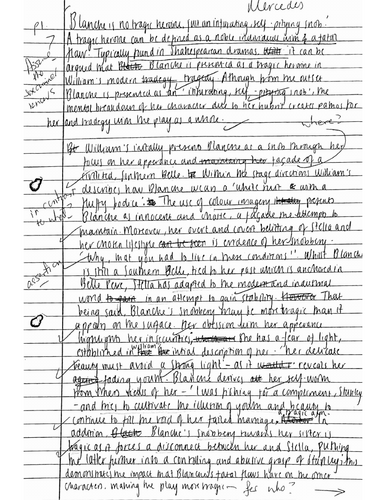 Mercedes
P1 'Blanche is no tragic heroine, just an infuriating self-pitying snob.'
A tragic heroine can be defined as a noble individual with a fatal
flaw. Typically found in Shakespearean dramas, it can be
argued that Blanche is presented as a tragic heroine in
William's modern tragedy. Although from the outset
Blanche is presented as an 'infuriating, self-pitying snob', the
mental breakdown of her character due to her hubris create pathos for
her and tragedy within the play as a whole.
where?
William's initially presents Blanche as a snob through her
focus on her appearance and facade of a
civilised, Southern Belle. Within the stage directions William's
describes how Blanche wears a 'white suit with a
fluffy bodice'. The use of colour imagery presents
in contrast to what?
Blanche as innocent and chaste, a facade she attempts to
maintain. Moreover, her overt and covert belittling of Stella and
her chosen lifestyle is evidence of her snobbery.
assertion
'Why, that you had to live in these conditions'. Whilst Blanche
is still a Southern Belle, tied to her past which is anchored in
Belle Reve, Stella has adapted to the modern and industrial
world in an attempt to gain stability. That
being said, Blanche's snobbery may be more tragic than it
appears on the surface. Her obsession with her appearance
highlights her insecurities, She has a fear of light,
established in William's initial description of her - 'her delicate
beauty must avoid a strong light' - as it reveals her
fading youth. Blanche derives her self-worth
from - 'I was fishing for a complement, Stanley'
- and tries to cultivate the illusion of youth and beauty to
continue to fill the void of her failed marriage, a tragic
addition. Blanche's snobbery towards her sister is
tragic as it forces a disconnect between her and Stella, pushing
the latter further into a controlling and abusive grasp of Stanley; this
demonstrates the impact that Blanche's fatal flaws have on the other
characters, making the play more tragic.
yes who?